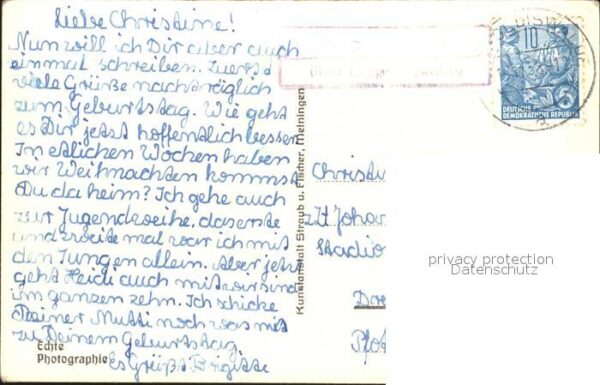 Liebe Christine!
Nun will ich Dir aber auch
einmal schreiben. Zuerst
viele Grüße nachträglich
zum Geburtstag. Wie geht
es Dir jetzt hoffentlich besser.
In etlichen Wochen haben
wir Weihnachten kommst
Du da heim? Ich gehe auch
zur Jugendweihe, das erste
und zweite mal war ich mit
den Jungen allein. Aber jetzt
geht Heidi auch mit wir sind
im ganzen zehn. Ich schicke
Deiner Mutti noch was mit
zu Deinem Geburtstag.
Es Grüßt Brigitte
Echte
Photographie
Kunstanstalt Straub u. Fischer, Meiningen
10
DEUTSCHE
DEMOKRATISCHE REPUBLIK
Christin
Stadio
Dre
privacy protection
Datenschutz